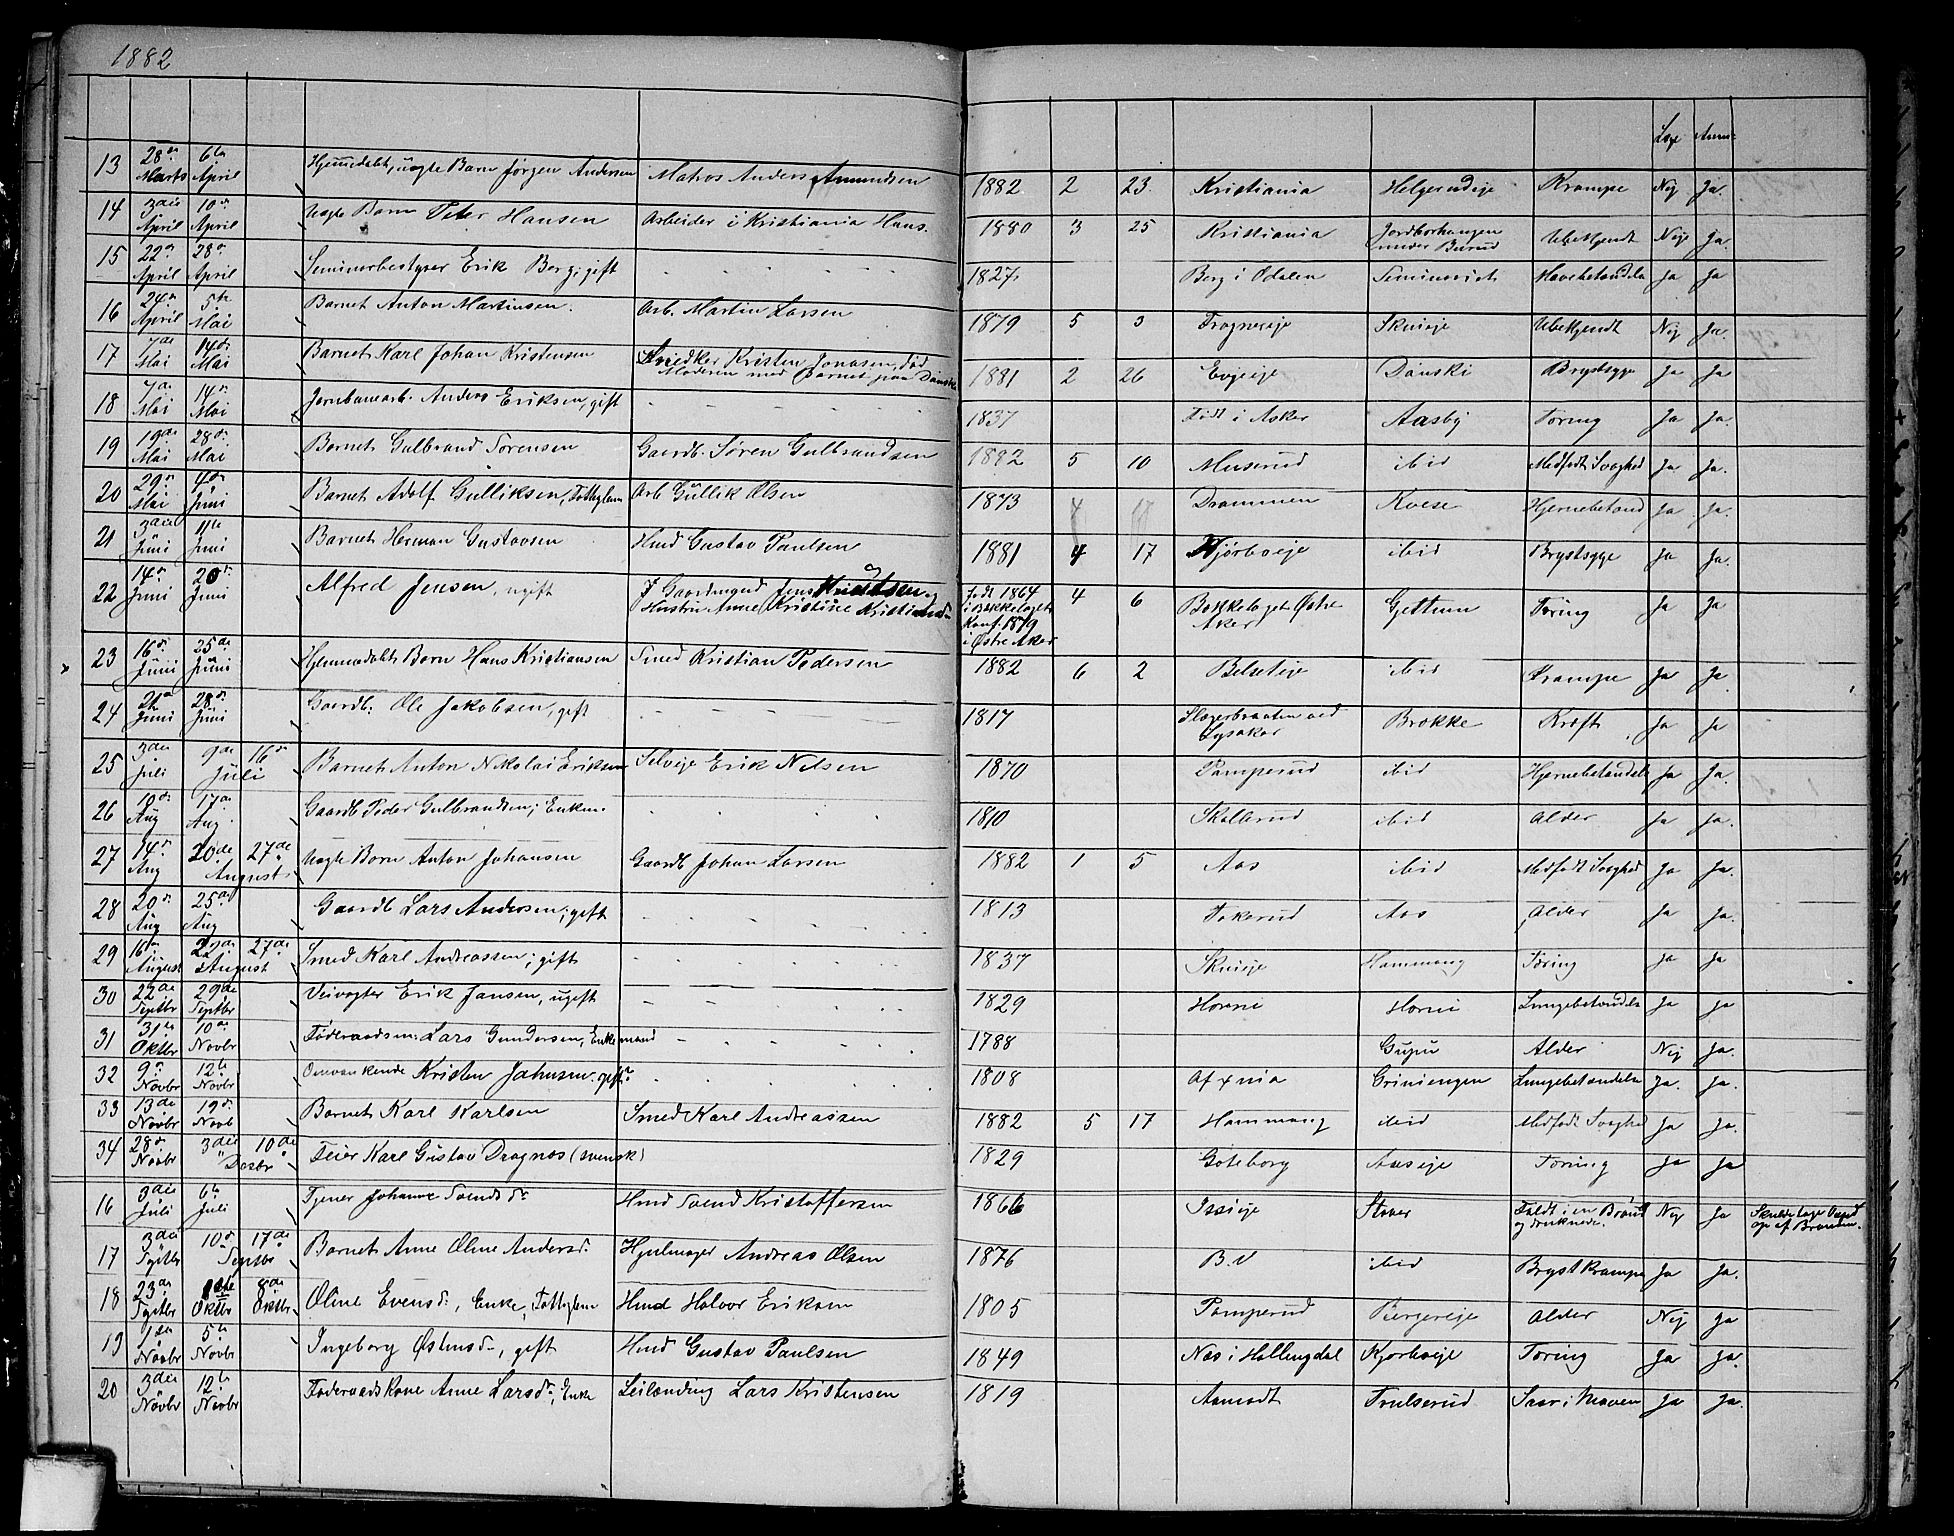 1882
Læge Anm:
13 28de Marts 6te April Hjemmedøbt, uægte Barn Jørgen Andersen Matros Anders Amundsen 1882 2 23. Kristiania Helgerudeje Krampe Nej Ja.
14 3die April 10de April Uægte Barn Peter Hansen Arbeider i Kristiania Hans. 1880 3 25 Kristiania Jordbærhaugen under Bærud Ubekjendt Neje Ja.
15 22de April 28de April Seminarbestyrer Erik Berg; gift 1827. Berg i Odalen Seminariet Mavebetændelse Ja Ja
16 24de April 5te Mai Barnet Anton Martinsen. Arb. Martin Larsen 1879 5 3 Frogнereje Skuieje Ubekjendt Nej Ja.
17 7de Mai 14de Mai Barnet Karl Johan Kristensen Snedker Kristen Jonasen, død Moderen med Barnet paa Dønske 1881 2 26 Evjeeje Dønski Brystsyge Ja Ja
18 7de Mai 14de Mai Jernbanearb. Anders Eriksen, gift 1837 Født i Asker Aasby Tæring Ja Ja.
19 19de Mai 28de Mai Barnet Gulbrand Sørensen Gaardb. Søren Gulbrandsen 1882 5 10 Muserud ibid Medfødt Svaghed Ja Ja.
20 29de Mai 4de Juni Barnet Adolf Gulliksen, Fattiglem Arb Gullik Olsen 1873 4 17 Drammen Kolse Hjernebetænd Ja Ja.
21 3die Juni 11te Juni Barnet Herman Gustavsen Hmd Gustav Paulsen 1881 4 17 Kjørboeje ibid Brystsyge Ja Ja
22 14de Juni 20de Juni Alfred Jensen, ugift F Gaardmand Jens Knutsen og Hustru Anne Kristine Kristiansd. født 1864 i Bækkelaget Konf. 1879 i Østre Aker 4 6 Bækkelaget Østre Aker Gjettum Tæring Ja Ja
23 16de Juni 25de Juni Hjemmedøbt Barn Hans Kristiansen Smed Kristian Pedersen 1882 6 2 Belseteje ibid Krampe Ja Ja
24 21de Juni 28de Juni Gaardb: Ole Jakobsen, gift 1817 Slæperbraaten ved Lysaker Brøkke Kræft Ja Ja
25 3die Juli 9de 16de Juli Barnet Anton Nikolai Eriksen Selveje Erik Nelsen 1870 Pamperud ibid Hjernebetændels Ja Ja.
26 10de Aug 17de Aug. Gaardb Peder Gulbrandsen; Enkem. 1810 Skollerud ibid Alder Ja Ja.
27 14de Aug 20de 27de August Uægte Barn Anton Johansen Gaardb Johan Larsen 1882 1 5 Aas ibid Medfødt Svaghed Ja Ja.
28 20de Aug 25de Aug Gaardb Lars Andersen; gift 1813 Tokerud Aas Alder Ja Ja.
29 16de August 22de 27de August Smed Karl Andreassen; gift 1837 Skuieje Hammang Tæring Ja Ja
30 22de Septbr 29de Septbr Veivogter Erik Jansen, ugift 1829 Horni Horni Lungebetændels Ja Ja
31 31te Oktbr 10de Novbr Føderaadsm. Lars Gundersen, Enkemand 1788 Gupu Alder Nej Ja.
32 9de Novbr 12te Novbr Omvankende Kristen Johnsen gift 1808 Griniengen Lungebetændelse Ja. Ja
33 13de Novbr 19de Novb Barnet Karl Karlsen Smed Karl Andreassen 1882 5 17 Hammang ibid Medfødt Svaghed Ja Ja.
34 28de Novbr 3die 10de Desbr Feier Karl Gustav Dragnøs (svensk) 1829 Gøteborg Aaseje Tæring Ja Ja
16 3die Juli 6te Juli Tjener Johanne Svendsdr. Hmd Svend Kristoffersen 1866 Isieje Staver Faldt i en Brønd og druknede. Nej Ja Skulde tage Vand op af Brønden.
17 3die Septbr 10de 17de Septbr Barnet Anne Oline Andersd. Hjulmager Andreas Olsen 1876 B.V ibid Brystkrampe Ja Ja.
18 23de Septbr 1ste Oktbr 8de Oktbr. Oline Evensd., Enke, Fattiglem Hmd Halvor Eriksen 1805 Pamperud Bergereje Alder Nej Ja
19 1ste Novbr 5te Novbr Ingeborg Østensd., gift Hmd Gustav Paulsen 1849 Næs i Hallingdal Kjørboeje Tæring Ja Ja.
20 3die Novbr 12te Novbr Føderaadskone Anne Larsdr, Enke Leilænding Lars Kristensen 1819 Aamodt Trulserud Saar i Maven Ja Ja.